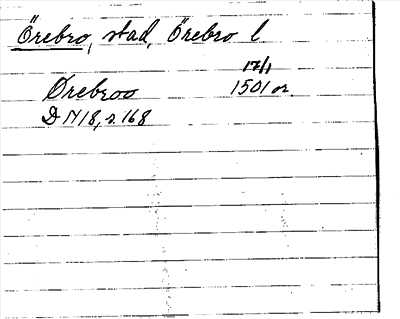 Örebro, stad, Örebro l
17/1
Ørebroo 1501 or.
DN 18, s. 168